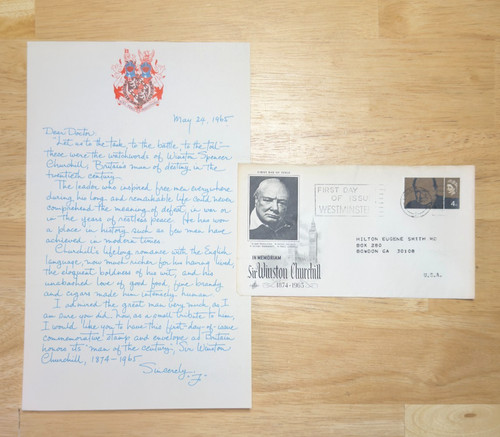 May 24, 1965
Dear Doctor:
Let us to the task, to the battle, to the toil —
these were the watchwords of Winston Spencer
Churchill, Britain's man of destiny in the
twentieth century.
The leader who inspired free men everywhere
during his long and remarkable life could never
comprehend the meaning of defeat, in war or
in the years of restless peace. He has won
a place in history such as few men have
achieved in modern times.
Churchill's lifelong romance with the English
language, now much richer for his having lived,
the eloquent boldness of his wit, and his
unabashed love of good food, fine brandy,
and cigars made him intensely human.
I admired the great man very much, as I
am sure you did. Now, as a small tribute to him,
I would like you to have this first-day-of-issue
commemorative stamp and envelope, as Britain
honors its "man of the century," Sir Winston
Churchill, 1874–1965.
Sincerely,
FIRST DAY OF ISSUE
FIRST DAY
OF ISSUE
WESTMINSTER
4d
IN MEMORIAM
Sir Winston Churchill
1874-1965
MILTON EUGENE SMITH MD
BOX 280
BOWDON GA 30108
U.S.A.